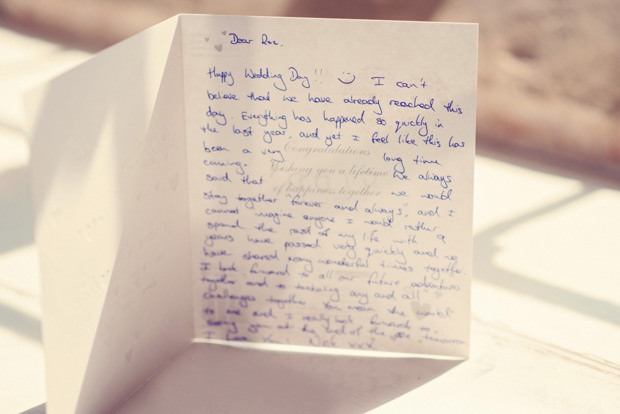 Dear Roz,
Happy Wedding Day!! I can't
believe that we have already reached this
day. Everything has happened so quickly in
the last year, and yet I feel like this has
been a very long time
Congratulations
coming. We always
Wishing you a lifetime
said that we would
of happiness together
stay together "forever and always", and I
cannot imagine anyone I would rather
spend the rest of my life with. 9
years have passed very quickly and we
have shared many wonderful times together.
I look forward to all our future adventures
together and to tackling any and all
challenges together. You mean the world
to me and I really look forward to
seeing you at the end of the aisle tomorrow
I love you! Nick xxx